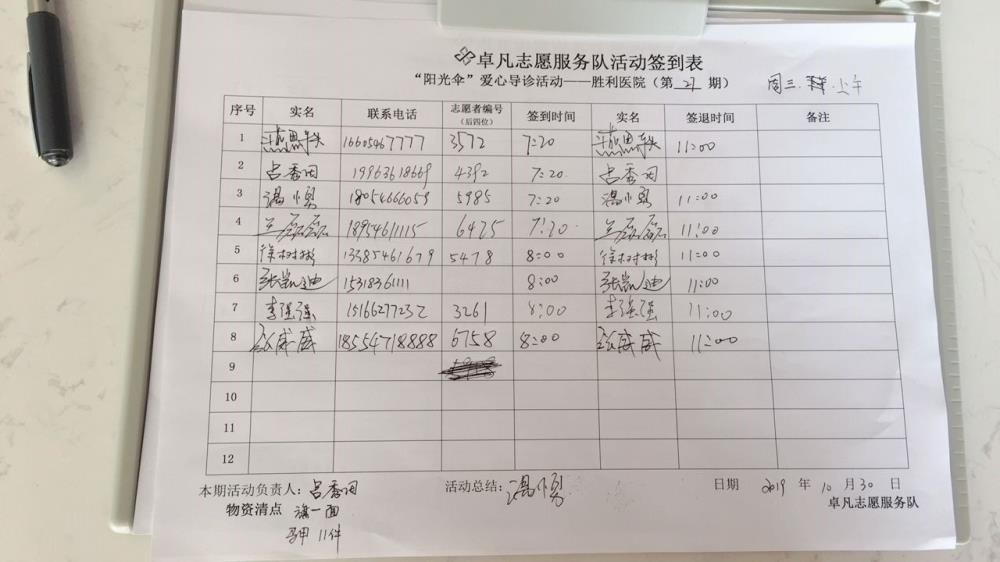 卓凡志愿服务队活动签到表
“阳光伞”爱心导诊活动——胜利医院（第 27 期） 周三 上午
序号 实名 联系电话 志愿者编号（后四位） 签到时间 实名 签退时间 备注
1 16605467777 3572 7:20 11:00
2 吕香田 19963618669 4392 7:20 吕香田
3 温小勇 18054666059 5985 7:20 温小勇 11:00
4 兰磊磊 18954611115 6475 7:20 兰磊磊 11:00
5 徐树彬 13385461679 5478 8:00 徐树彬 11:00
6 张凯迪 15318361111 8:00 张凯迪 11:00
7 李强强 15166277232 3261 8:00 李强强 11:00
8 威威 18554718888 6758 8:00 威威 11:00
9
10
11
12
本期活动负责人：吕香田 活动总结：温小勇 日期 2019 年 10 月 30 日
物资清点 旗一面 卓凡志愿服务队
马甲 11件